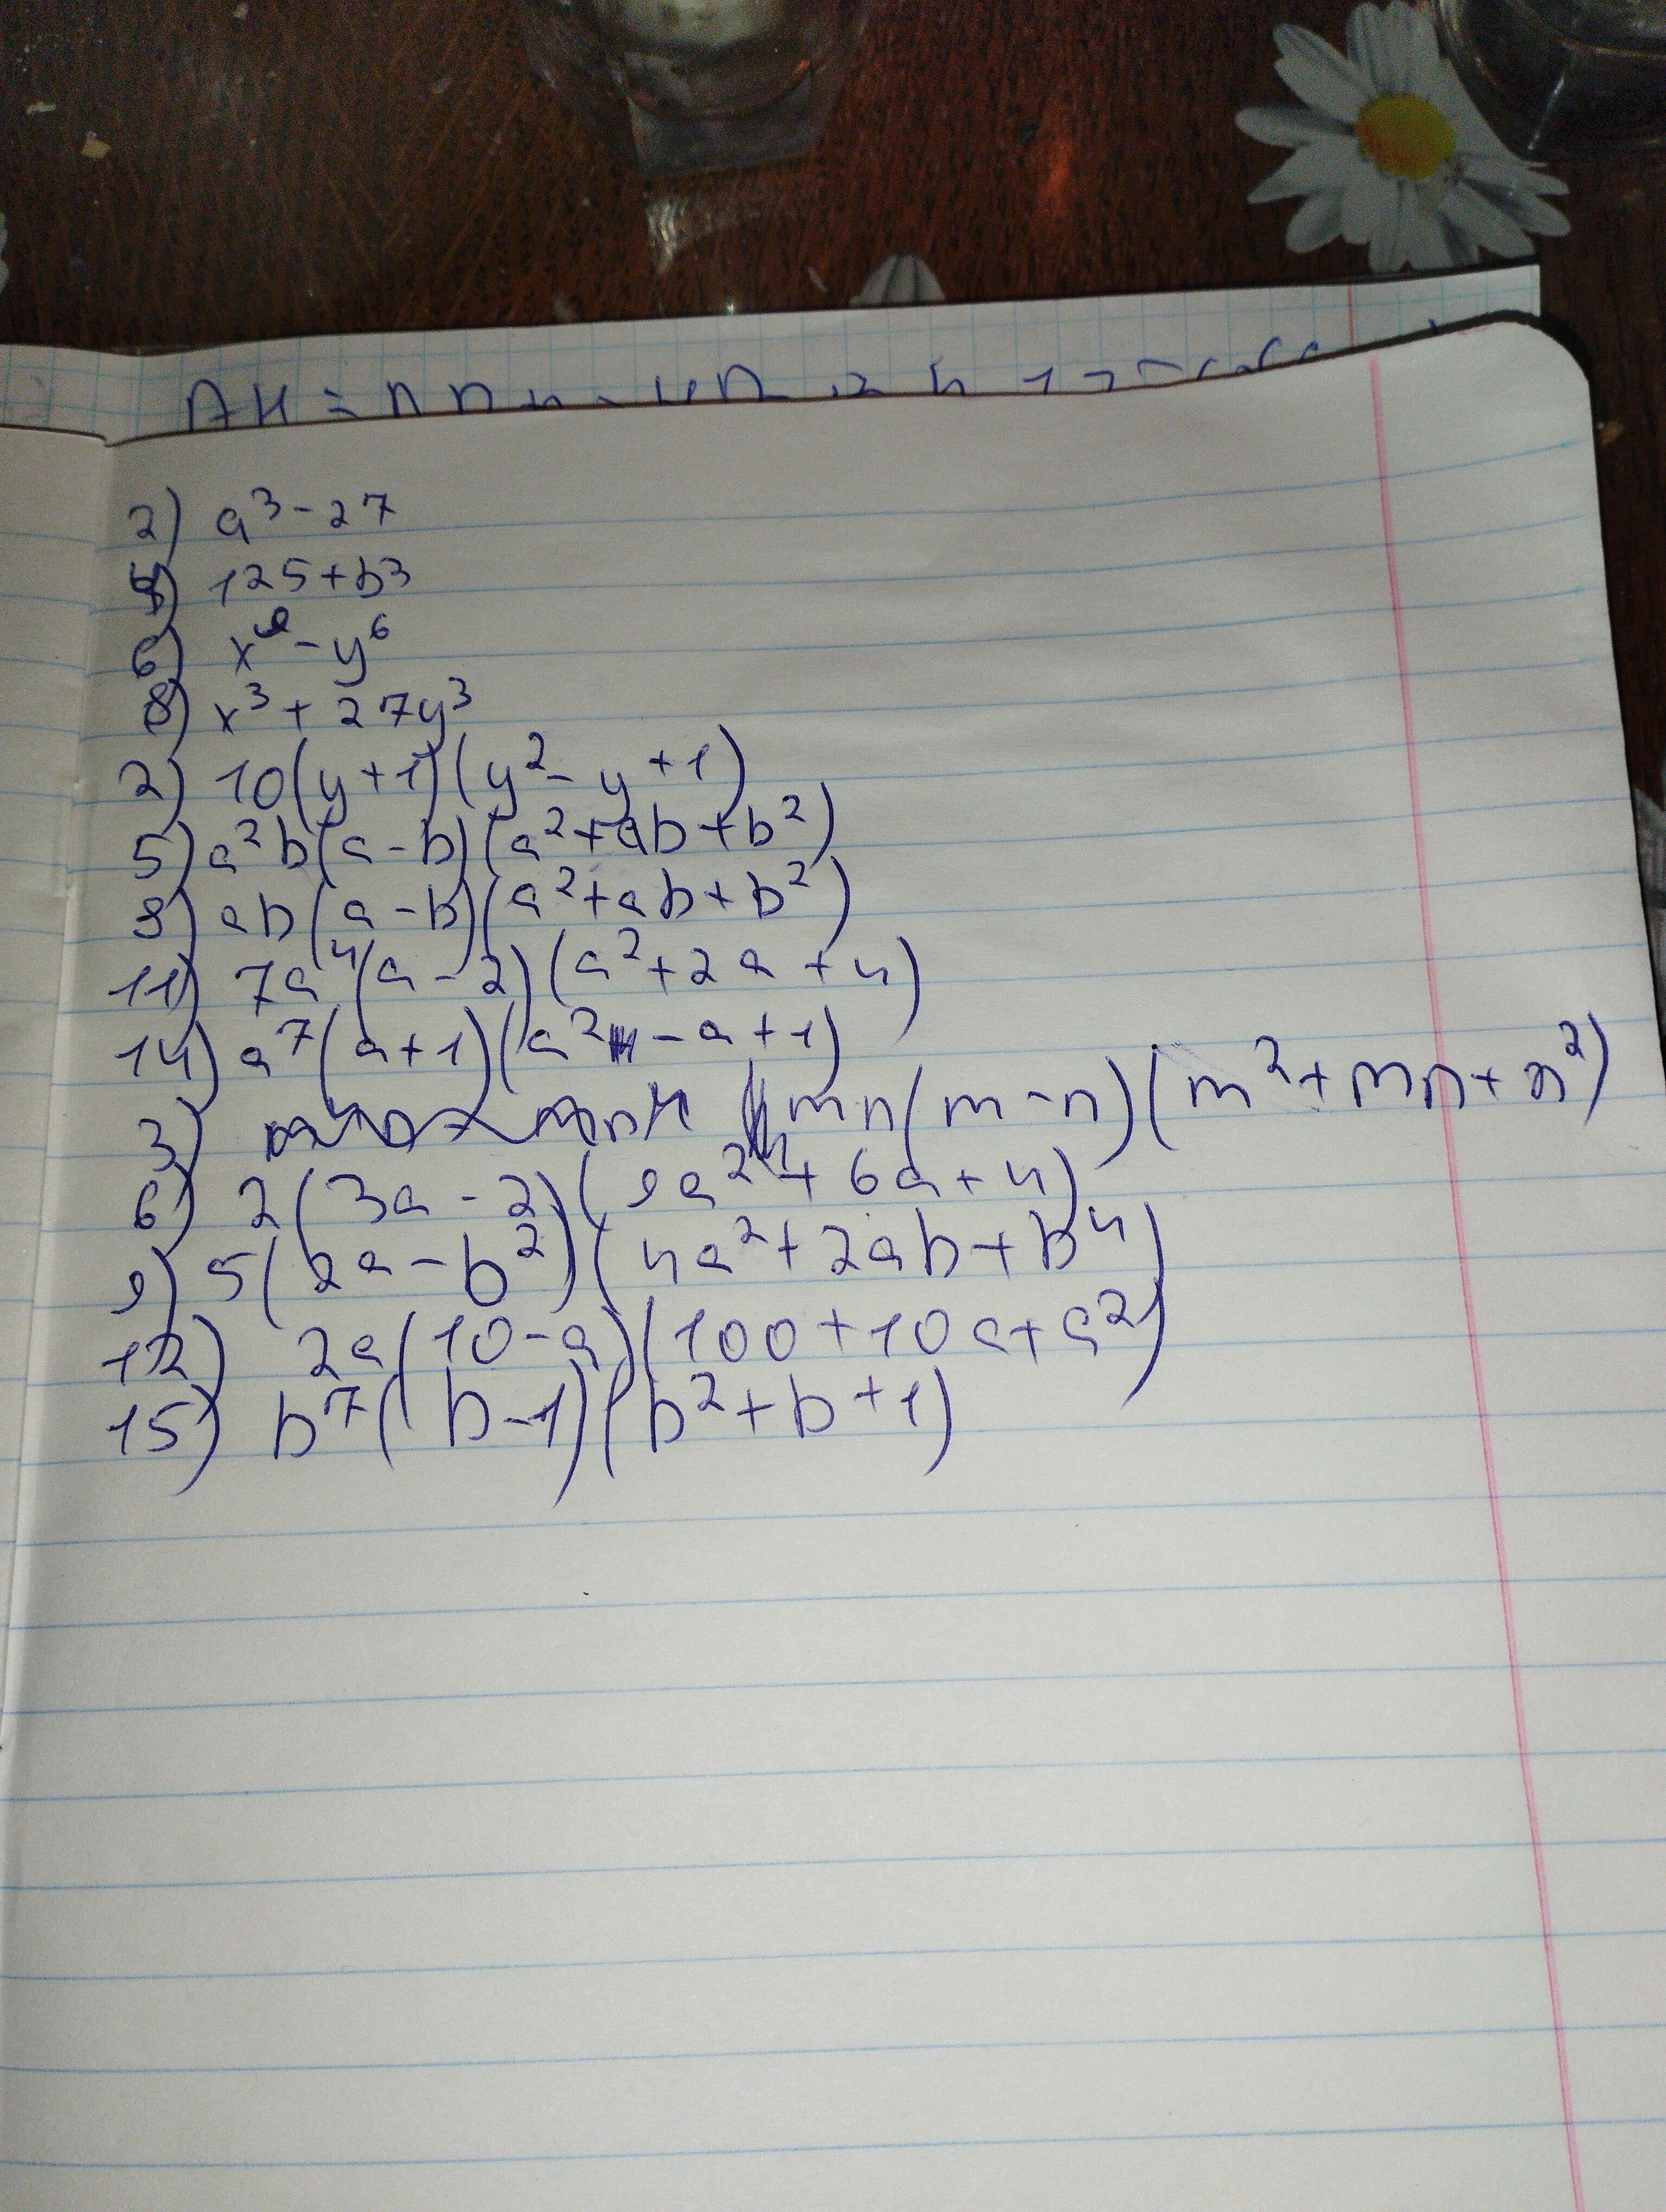 2) a³-27
4) 125+b3
6) x⁹-y⁶
8) x³+27y³
2) 10(y+1)(y²-y+1)
5) a²b(a-b)(a²+ab+b²)
8) ab(a-b)(a²+ab+b²)
11) 7a⁴(a-2)(a²+2a+4)
14) a⁷(a+1)(a²-a+1)
3) mn(m-n)(m²+mn+n²)
6) 2(3a-2)(9a²+6a+4)
9) 5(2a-b²)(4a²+2ab+b⁴)
12) 2a(10-a)(100+10a+a²)
15) b⁷(b-1)(b²+b+1)